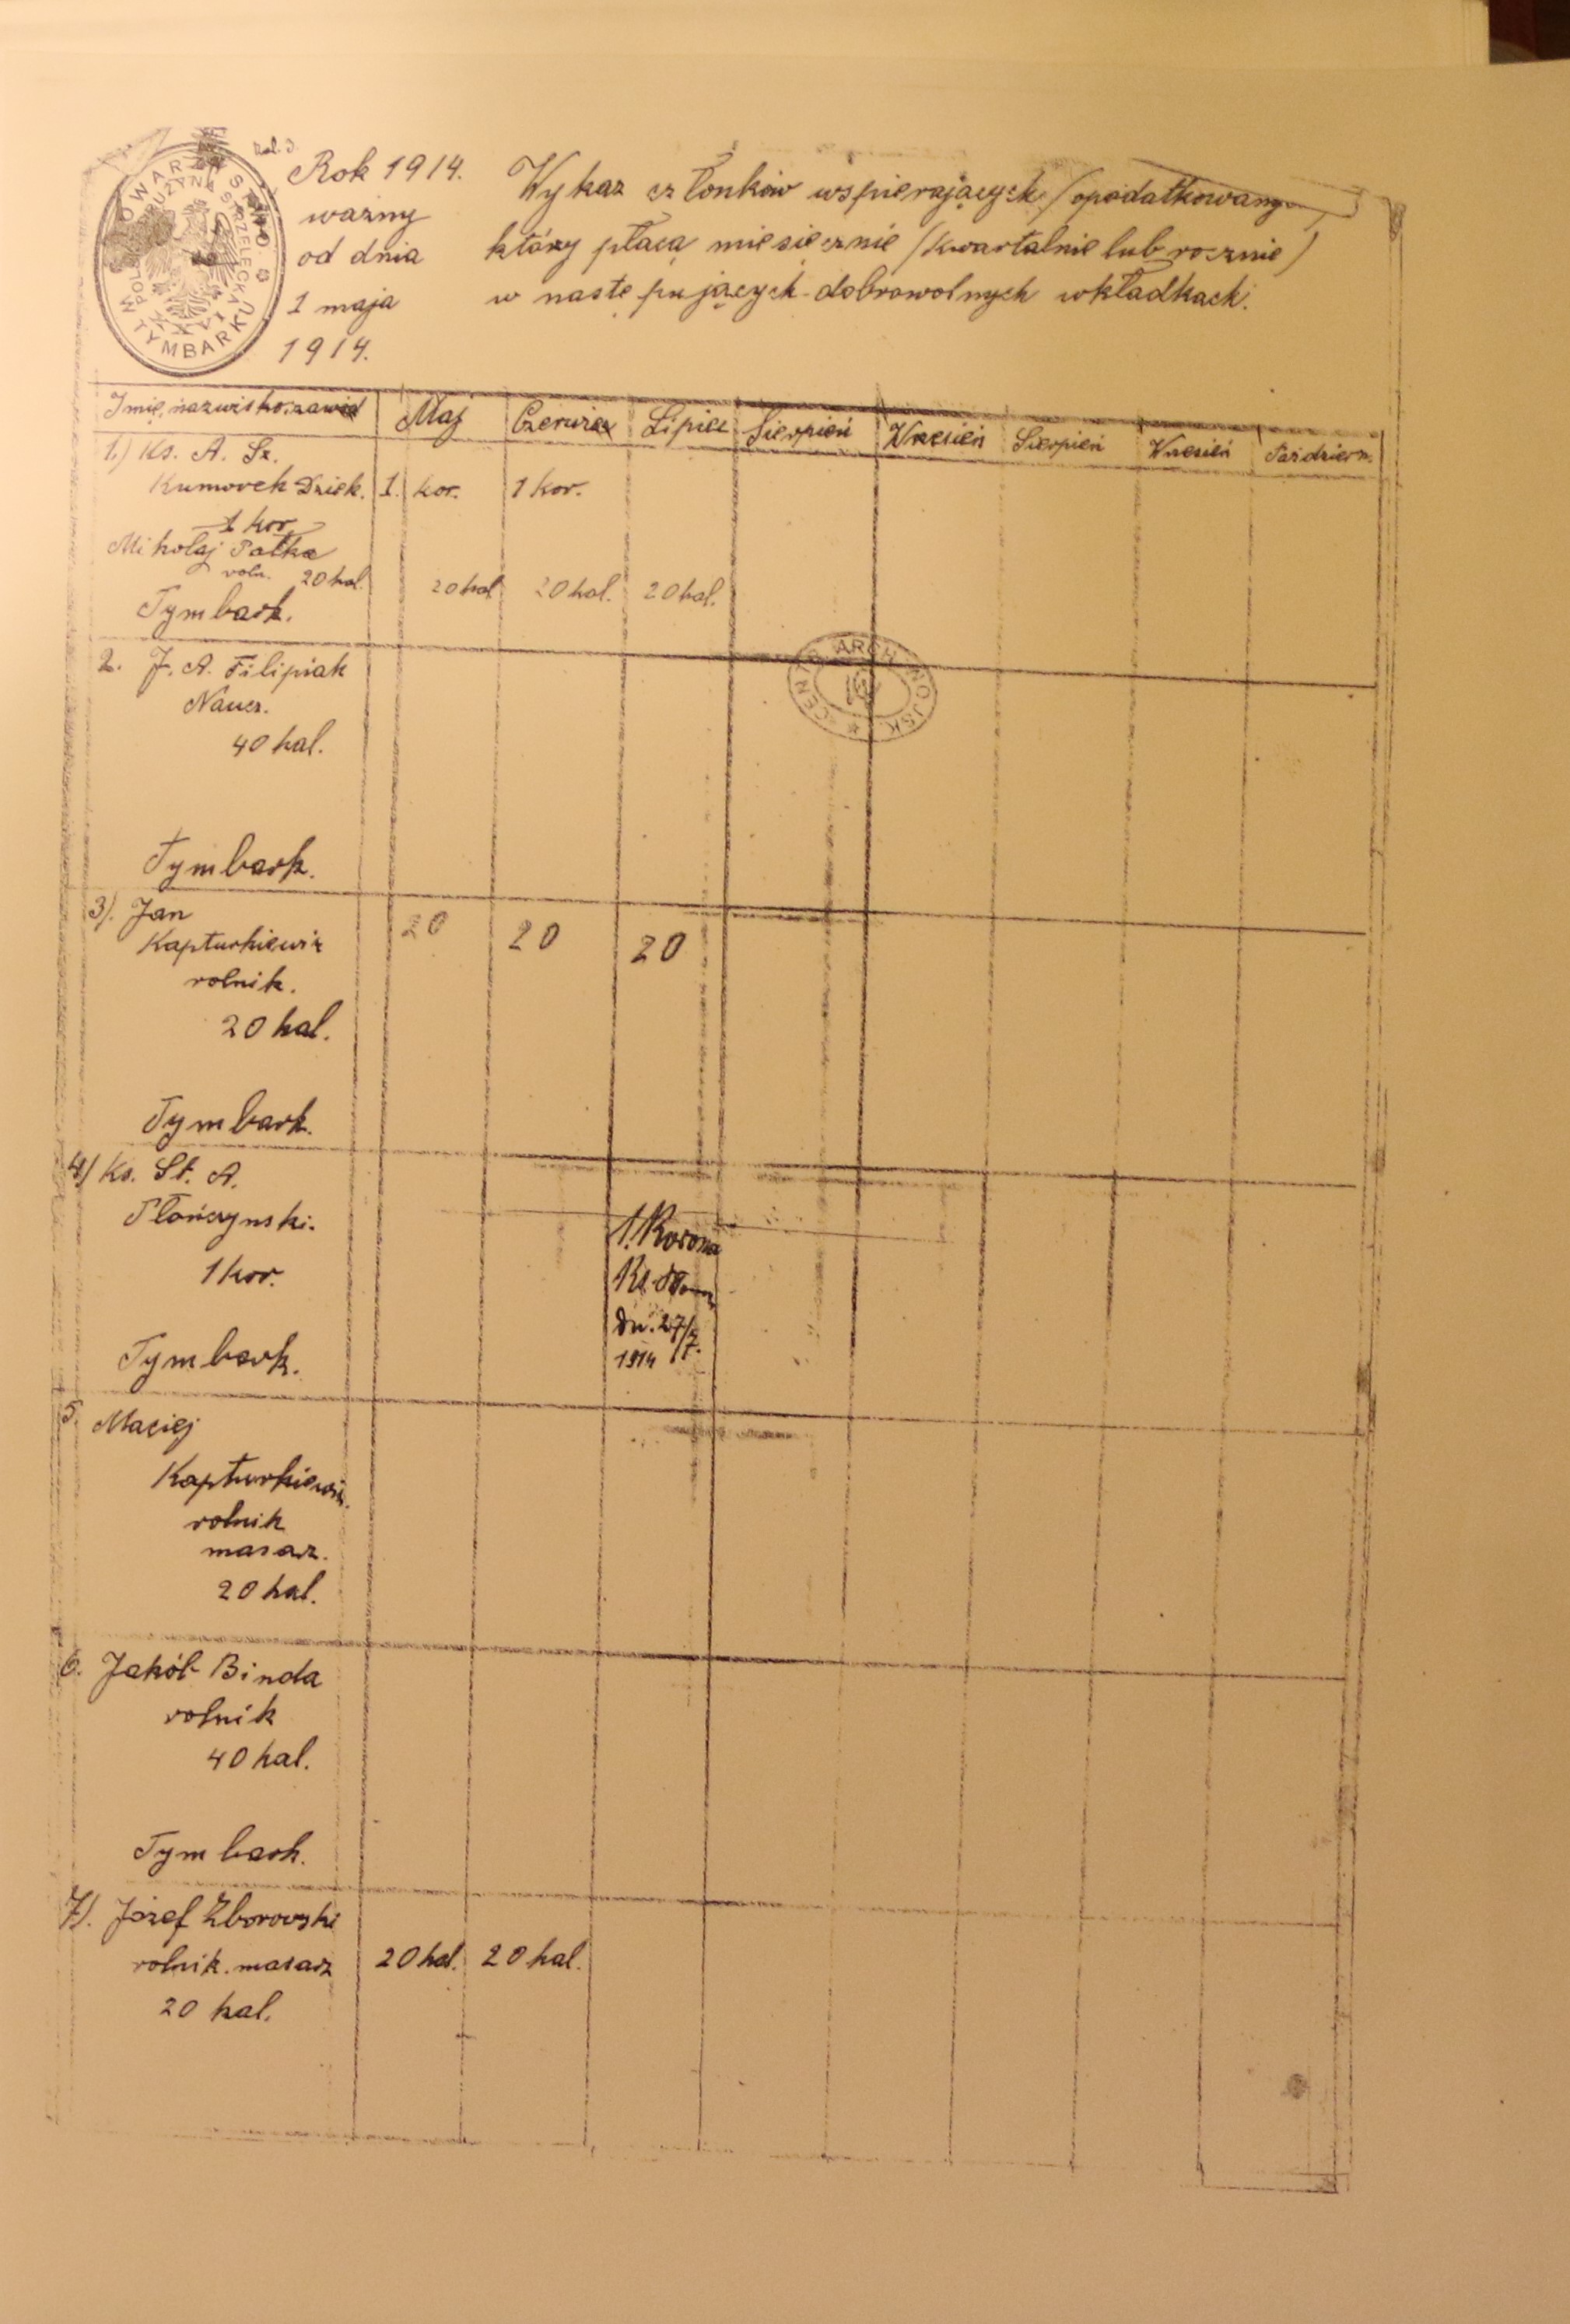 TOWARZYSTWO
POL. DRUŻYNA STRZELECKA
W TYMBARKU
Rok 1914.
ważny
od dnia
1 maja
1914.
Wykaz członków wspierających (opodatkowany
który płacą miesięcznie (kwartalnie lub rocznie)
w następujących dobrowolnych wkładkach:
Imię, nazwisko, zawód Maj Czerwiec Lipiec Sierpień Wrzesień Sierpień Wrzesień Październ.
1.) Ks. A. Sz.
Kumorek Dziek. 1. kor. 1 kor.
1 kor.
Mikołaj Patka
roln. 20 hal. 20 hal 20 hal. 20 hal.
Tymbark.
2. J. A. Filipiak
Naucz.
40 hal.
CENTR. ARCH. WOJSK.
Tymbark.
3). Jan 20 20 20
Kapturkiewicz
rolnik.
20 hal.
Tymbark.
4) Ks. St. A.
Płończynski. 1. Korona
1 kor.
dn. 27/7.
1914
Tymbark.
5. Maciej
Kapturkiewicz.
rolnik
masarz.
20 hal.
6. Jakób Binda
rolnik
40 hal.
Tymbark.
7). Józef Zborowski
rolnik. masarz 20 hal. 20 hal.
20 hal.